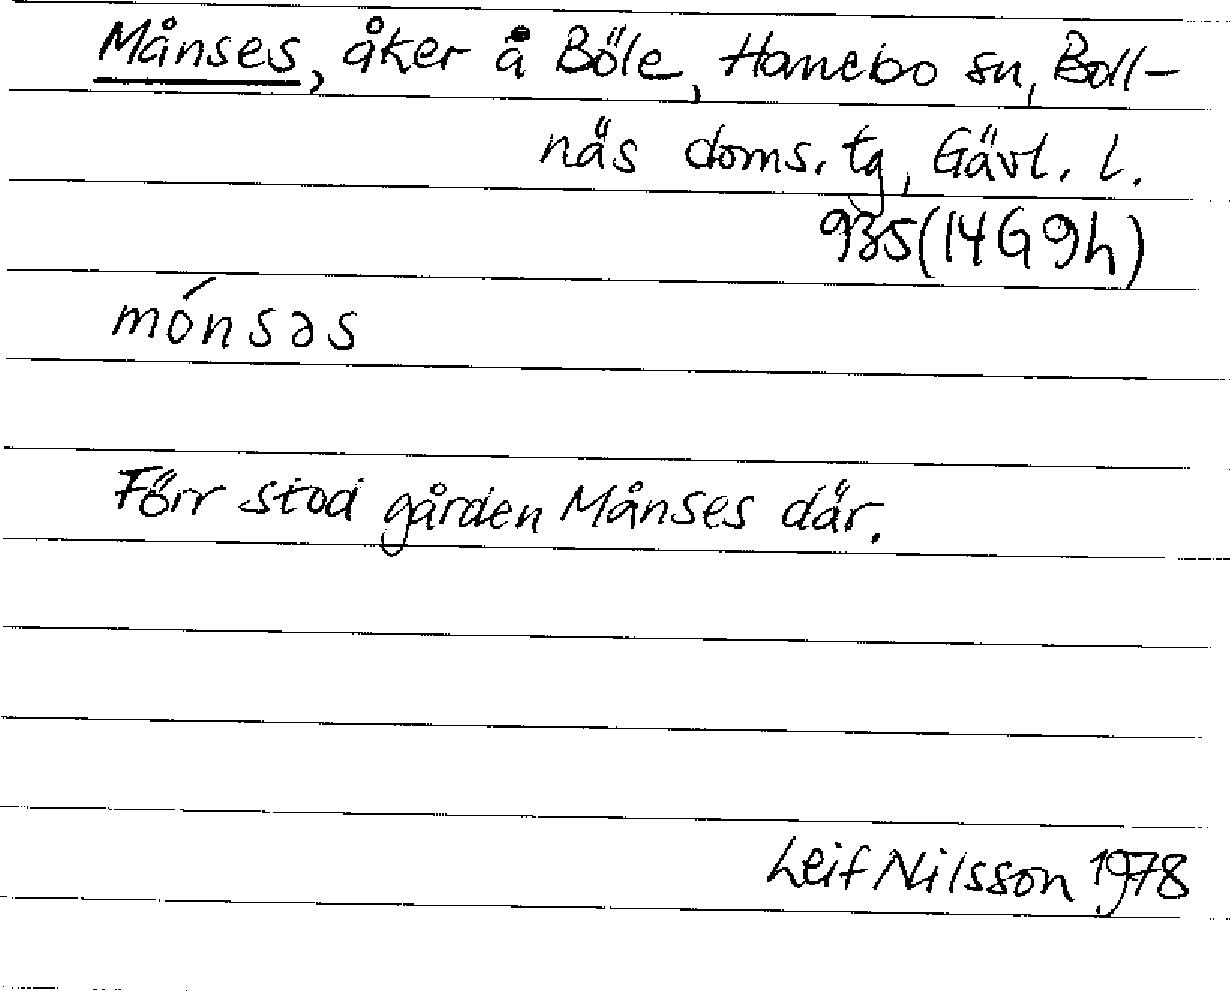 Månses, åker å Böle, Hanebo sn, Boll-
näs doms. tg, Gävl. l.
935(14G9h)
mónsəs
Förr stod gården Månses där.
Leif Nilsson 1978